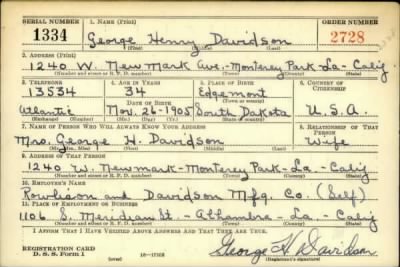 SERIAL NUMBER 1. NAME (Print) ORDER NUMBER
1334 George Henry Davidson 2728
(First) (Middle) (Last)
2. ADDRESS (Print)
1240 W. New Mark Ave.-Monterey Park-La-Calif
(Number and street or R. F. D. number) (Town) (County) (State)
3. TELEPHONE 4. AGE IN YEARS 5. PLACE OF BIRTH 6. COUNTRY OF CITIZENSHIP
13534 34 Edgemont
DATE OF BIRTH
Atlantic Nov. 26-1905 South Dakota U.S.A.
7. NAME OF PERSON WHO WILL ALWAYS KNOW YOUR ADDRESS 8. RELATIONSHIP OF THAT PERSON
Mrs. George H. Davidson Wife
9. ADDRESS OF THAT PERSON
1240 W. Newmark-Monterey Park-La-Calif
(Number and street or R. F. D. number) (Town) (County) (State)
10. EMPLOYER'S NAME
Rowlison and Davidson Mfg. Co. (Self)
11. PLACE OF EMPLOYMENT OR BUSINESS
1106 S. Meridian St-Alhambra-La-Calif
(Number and street or R. F. D. number) (Town) (County) (State)
I AFFIRM THAT I HAVE VERIFIED ABOVE ANSWERS AND THAT THEY ARE TRUE.
REGISTRATION CARD
D. S. S. Form 1 George H. Davidson
(Registrant's signature)